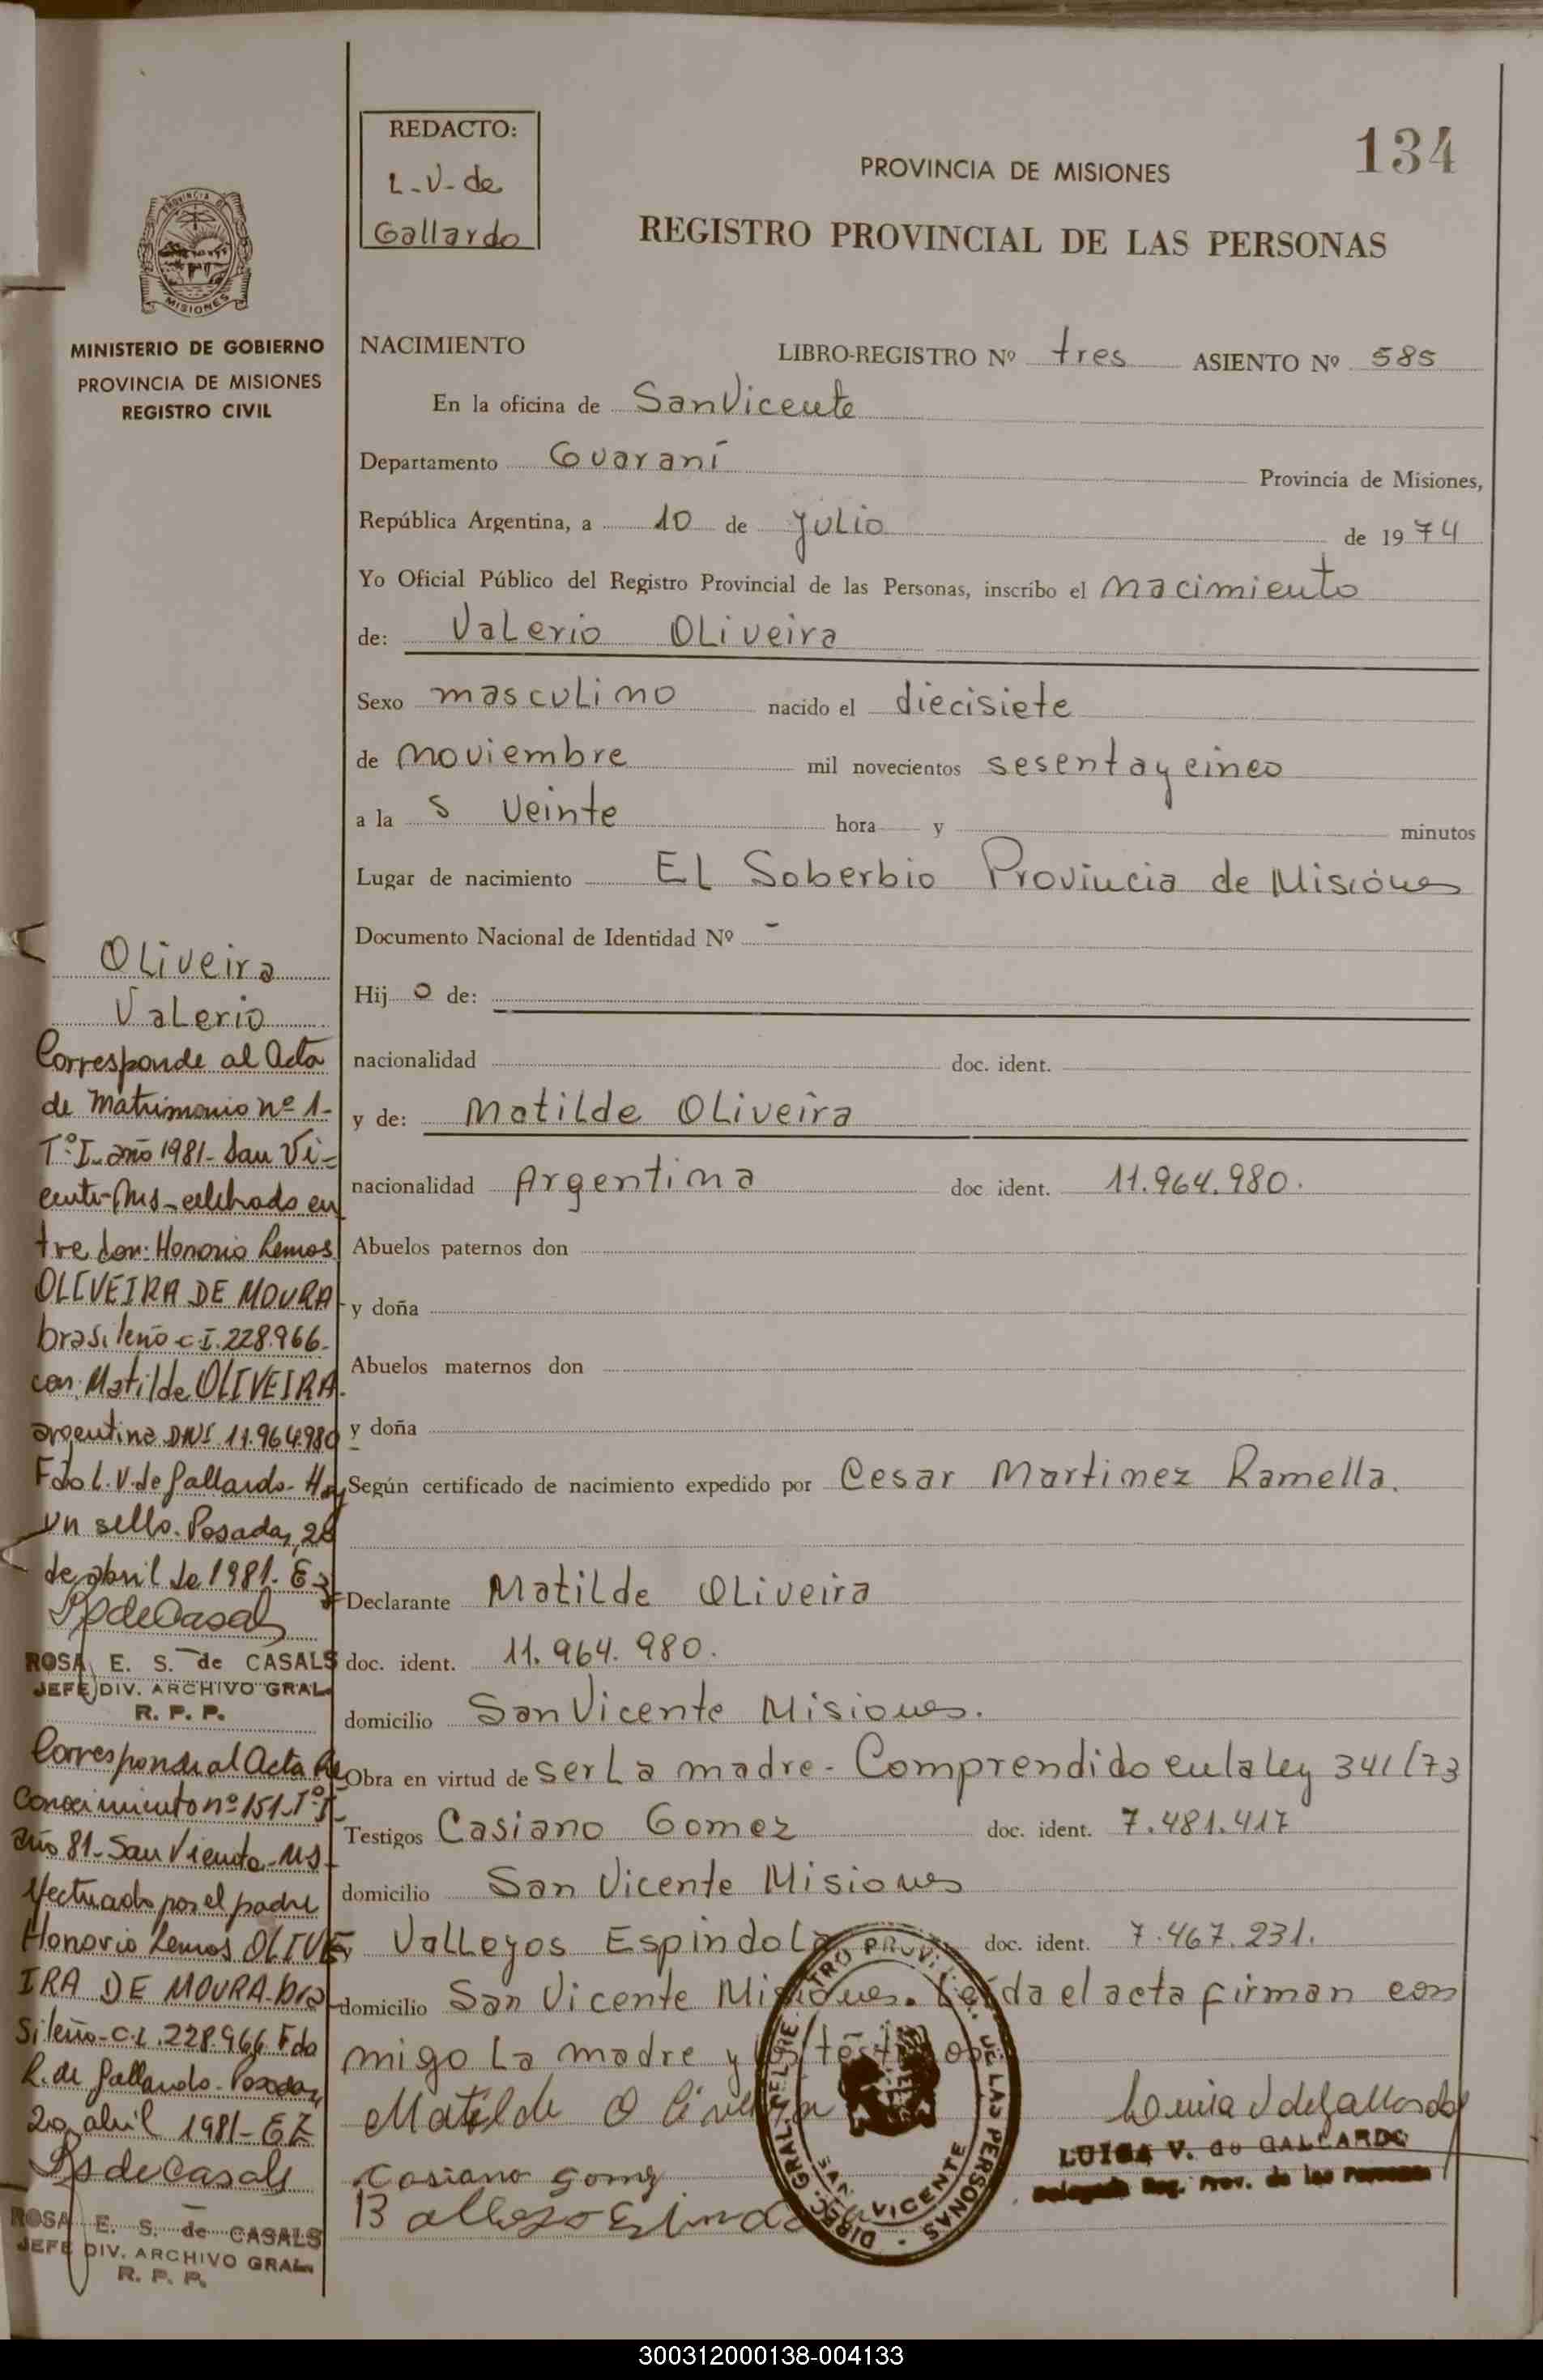 REDACTO:
L-V-de
Gallardo
134
PROVINCIA DE MISIONES
REGISTRO PROVINCIAL DE LAS PERSONAS
PROVINCIA DE
MISIONES
MINISTERIO DE GOBIERNO
PROVINCIA DE MISIONES
REGISTRO CIVIL
NACIMIENTO LIBRO-REGISTRO Nº tres ASIENTO Nº 585
En la oficina de San Vicente
Departamento Guaraní Provincia de Misiones,
República Argentina, a 10 de julio de 1974
Yo Oficial Público del Registro Provincial de las Personas, inscribo el nacimiento
de: Valerio Oliveira
Sexo masculino nacido el diecisiete
de noviembre mil novecientos sesenta y cinco
a la s veinte hora y minutos
Lugar de nacimiento El Soberbio Provincia de Misiones
Documento Nacional de Identidad Nº -
Hij o de:
nacionalidad doc. ident.
y de: Matilde Oliveira
nacionalidad Argentina doc ident. 11.964.980.
Abuelos paternos don
y doña
Abuelos maternos don
y doña
Según certificado de nacimiento expedido por Cesar Martinez Ramella.
Declarante Matilde Oliveira
doc. ident. 11.964.980.
domicilio San Vicente Misiones.
Obra en virtud de ser la madre - Comprendido en la ley 341/73
Testigos Casiano Gomez doc. ident. 7.481.417
domicilio San Vicente Misiones
y Valleyos Espindola doc. ident. 7.467.231.
domicilio San Vicente Misiones. Leída el acta firman con
migo la madre y los testigos
Matilde Oliveira
Casiano Gomez
Luisa V de Gallardo
LUISA V. de GALLARDO
Delegada Reg. Prov. de las Personas
DIREC. GRAL. DEL REGISTRO PROV. DE LAS PERSONAS
SAN VICENTE
Oliveira
Valerio
Corresponde al Acta
de Matrimonio nº 1-
Tº I- año 1981- San Vi-
cente-Mns-celebrado en
tre don: Honorio Lemos
OLIVEIRA DE MOURA
brasileño c.I. 228.966-
con: Matilde OLIVEIRA.
argentina DNI 11.964.980
Fdo L.V. de Gallardo- Hay
un sello. Posadas, 28
de abril de 1981. EZ
RS de Casals
ROSA E. S. de CASALS
JEFE DIV. ARCHIVO GRAL.
R. P. P.
Corresponde al Acta Re
conocimiento nº 151-Tº I-
año 81- San Vicente-Ms-
efectuado por el padre
Honorio Lemos OLIVE
IRA DE MOURA-bra
sileño-C.I. 228.966 Fdo
L. de Gallardo- Posadas
20 abril 1981- EZ
RS de Casals
ROSA E. S. de CASALS
JEFE DIV. ARCHIVO GRAL.
R. P. P.
300312000138-004133